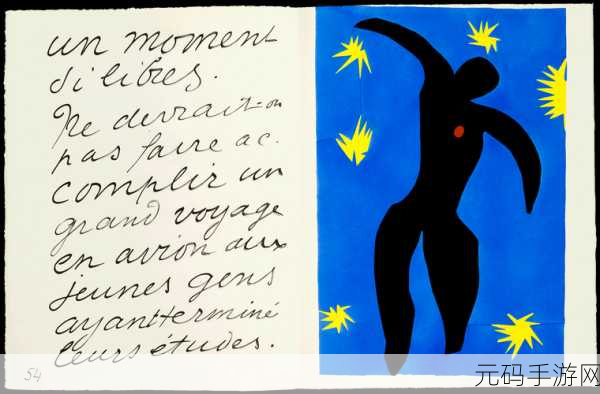 un moment
si libres.
Ne devrait-on
pas faire ac-
complir un
grand voyage
en avion aux
jeunes gens
ayant terminé
leurs études.
54
元码手游网